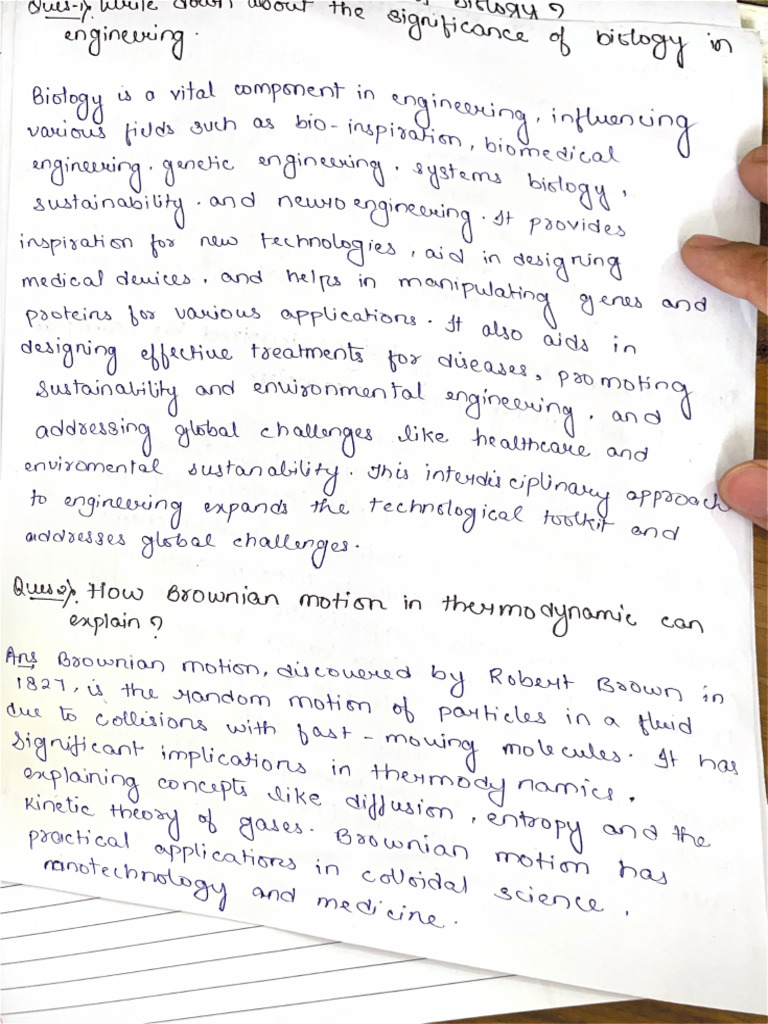 Biology?
Ques-1) Write down about the significance of biology in
engineering.
Biology is a vital component in engineering, influencing
various fields such as bio-inspiration, biomedical
engineering, genetic engineering, systems biology,
sustainability, and neuro engineering. It provides
inspiration for new technologies, aid in designing
medical devices, and helps in manipulating genes and
proteins for various applications. It also aids in
designing effective treatments for diseases, promoting
sustainability and environmental engineering, and
addressing global challenges like healthcare and
enviromental sustanability. This interdisciplinary approach
to engineering expands the technological toolkit and
addresses global challenges.
Ques2). How Brownian motion in thermodynamic can
explain?
Ans Brownian motion, discovered by Robert Brown in
1827, is the random motion of particles in a fluid
due to collisions with fast-moving molecules. It has
significant implications in thermodynamics,
explaining concepts like diffusion, entropy and the
kinetic theory of gases. Brownian motion has
practical applications in colloidal science,
nanotechnology and medicine.